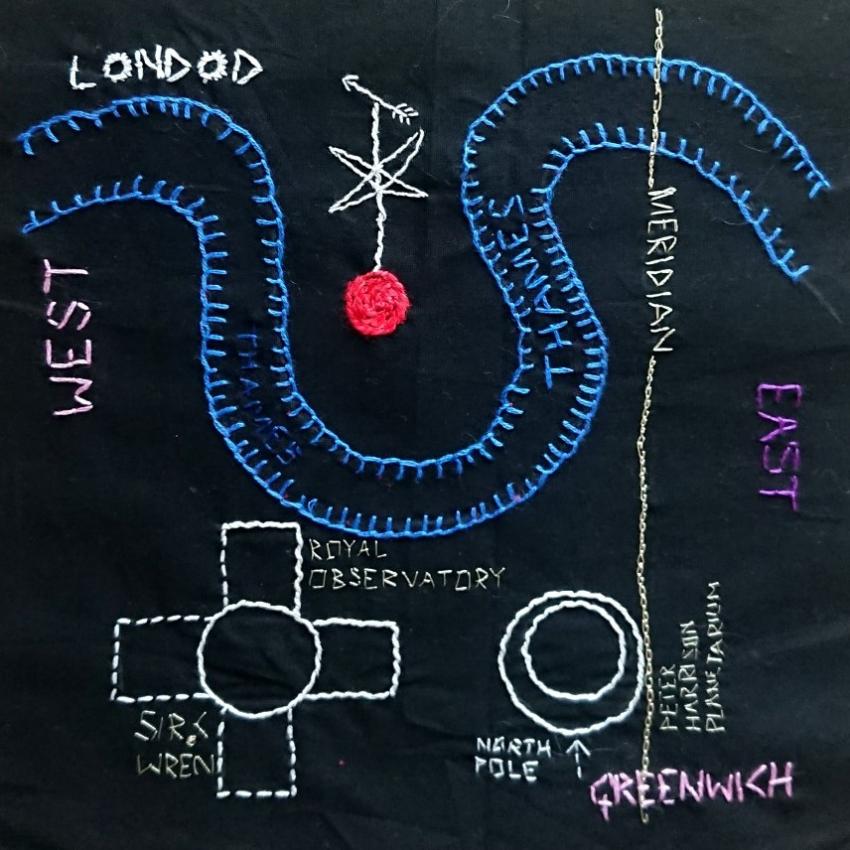 LONDOD
MERIDIAN
THAMES
WEST
THAMES
EAST
ROYAL
OBSERVATORY
PETER
HARRISON
PLANETARIUM
SIR C
WREN
NORTH
POLE
GREENWICH